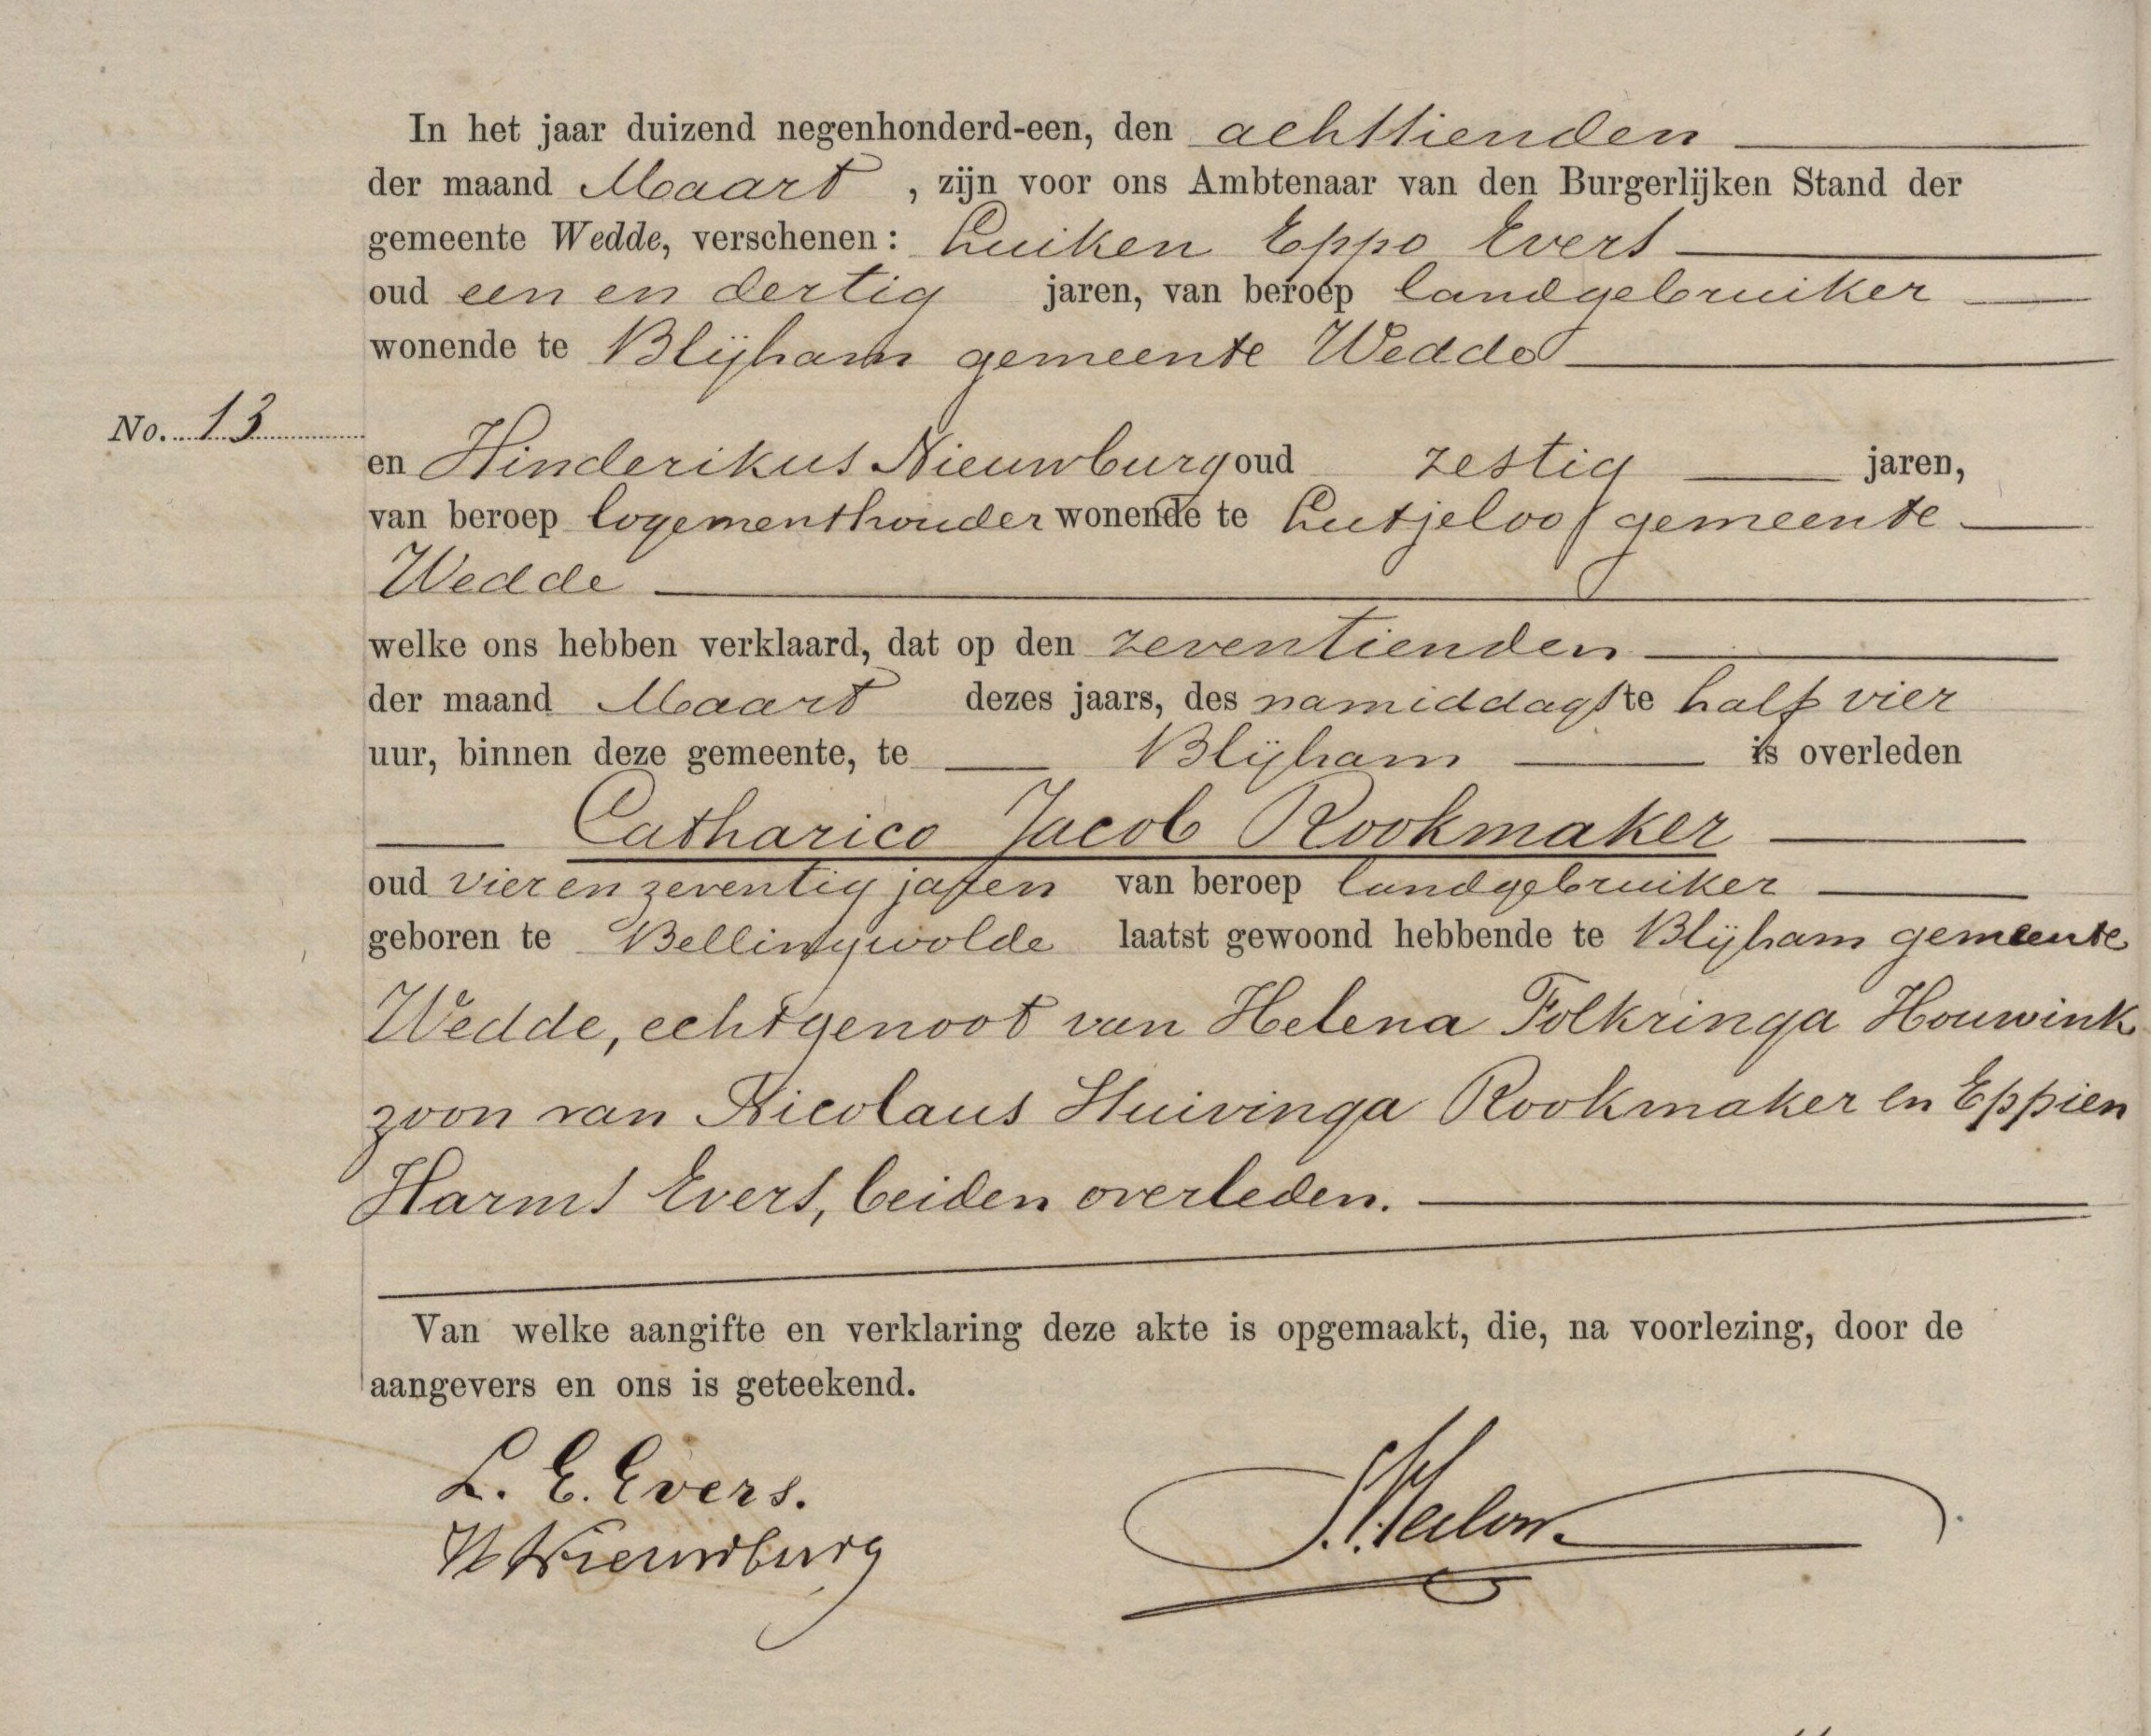 In het jaar duizend negenhonderd-een, den achttienden
der maand Maart, zijn voor ons Ambtenaar van den Burgerlijken Stand der
gemeente Wedde, verschenen: Luiken Eppo Evers
oud een en dertig jaren, van beroep landgebruiker
wonende te Blijham gemeente Wedde
No. 13
en Hinderikus Nieuwburg oud zestig jaren,
van beroep logementhouder wonende te Lutjeloo, gemeente
Wedde
welke ons hebben verklaard, dat op den zeventienden
der maand Maart dezes jaars, des namiddags te half vier
uur, binnen deze gemeente, te Blijham is overleden
Catharico Jacob Rookmaker
oud vier en zeventig jaren van beroep landgebruiker
geboren te Bellingwolde laatst gewoond hebbende te Blijham gemeente
Wedde, echtgenoot van Helena Folkringa Houwink
zoon van Nicolaus Huivinga Rookmaker en Eppien
Harms Evers, beiden overleden.
Van welke aangifte en verklaring deze akte is opgemaakt, die, na voorlezing, door de
aangevers en ons is geteekend.
L. E. Evers.
H Nieuwburg